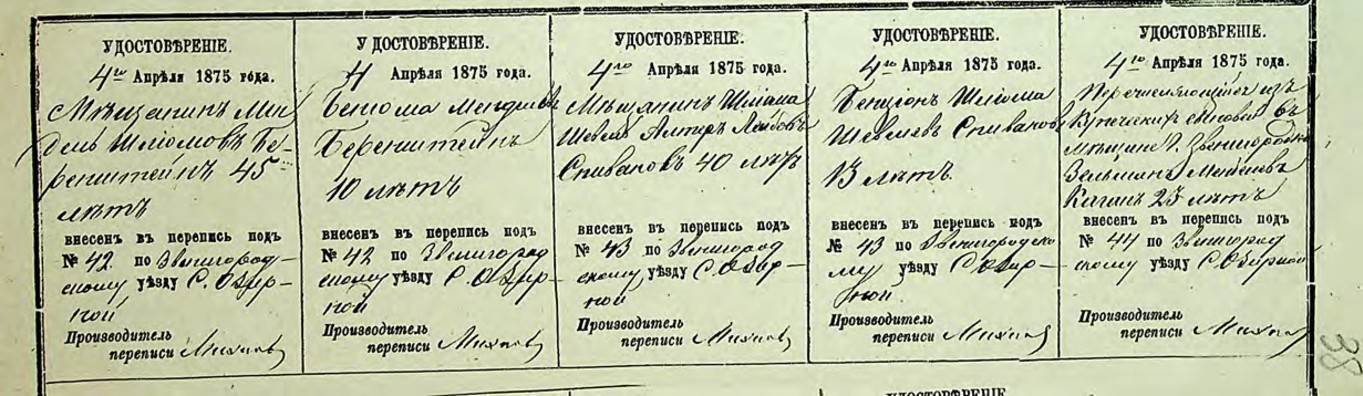 УДОСТОВѢРЕНІЕ.
4го Апрѣля 1875 года.
Мѣщанинъ Мен
дель Шліомовъ Бе-
ренштейнъ 45
лѣтъ
внесенъ въ перепись подъ
№ 42 по Звенигород-
скому уѣзду С. Озир-
ной
Производитель
переписи
УДОСТОВѢРЕНІЕ.
4 Апрѣля 1875 года.
Менделевъ
Беренштейнъ
10 лѣтъ
внесенъ въ перепись подъ
№ 42 по Звенигород
скому уѣзду С. Озир-
ной
Производитель
переписи
УДОСТОВѢРЕНІЕ.
4го Апрѣля 1875 года.
Мѣщанинъ Шліома
Шевель Алтеръ Лейбовъ
Спивановъ 40 лѣтъ
внесенъ въ перепись подъ
№ 43 по Звенигород
скому уѣзду С. Озир-
ной
Производитель
переписи
УДОСТОВѢРЕНІЕ.
4го Апрѣля 1875 года.
Бенціонъ Шліома
Шевелевъ Спивановъ
13 лѣтъ.
внесенъ въ перепись подъ
№ 43 по Звенигородско
му уѣзду С Озир-
ной.
Производитель
переписи
УДОСТОВѢРЕНІЕ.
4го Апрѣля 1875 года.
Перечисляющійся изъ
купеческихъ сыновей въ
мѣщане г. Звенигородки
Зельманъ
Каганъ 23 лѣтъ
внесенъ въ перепись подъ
№ 44 по Звенигород
скому уѣзду С. Озирной
Производитель
переписи
38
УДОСТОВѢРЕНІЕ